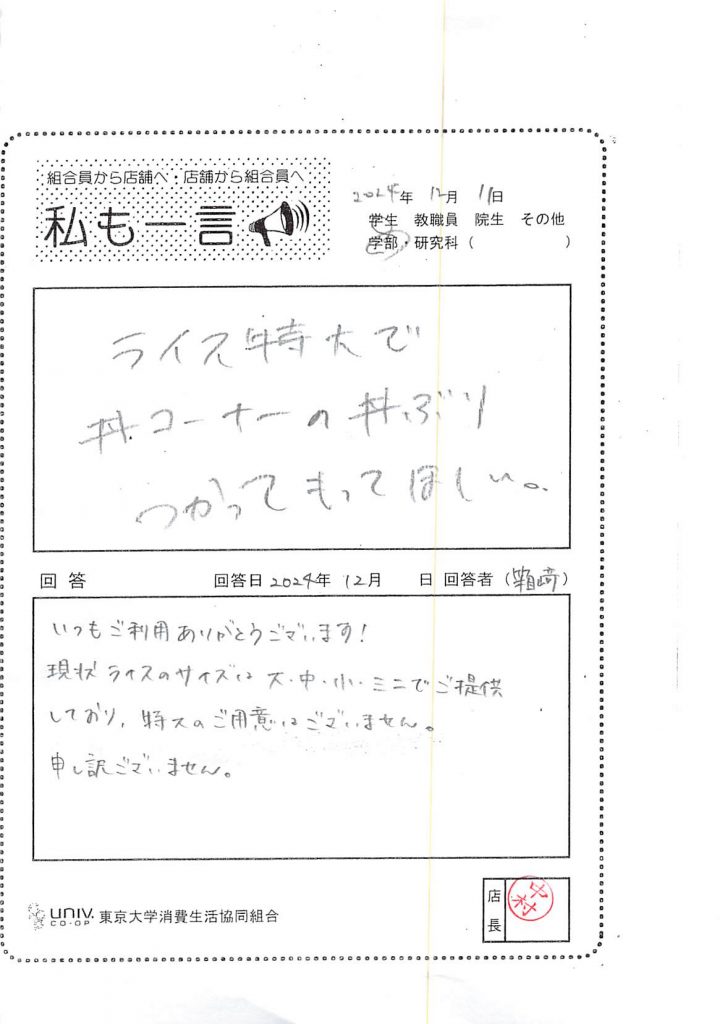 組合員から店舗へ・店舗から組合員へ
私も一言
2024年 12月 11日
学生 教職員 院生 その他
学部・研究科( )
ライス特大で
丼コーナーの丼ぶり
つかってもってほしい。
回答 回答日2024年 12月 日 回答者(箱﨑)
いつもご利用ありがとうございます!
現状ライスのサイズは大・中・小・ミニでご提供
しており、特大のご用意はございません。
申し訳ございません。
UNIV. CO-OP 東京大学消費生活協同組合
店長
中村